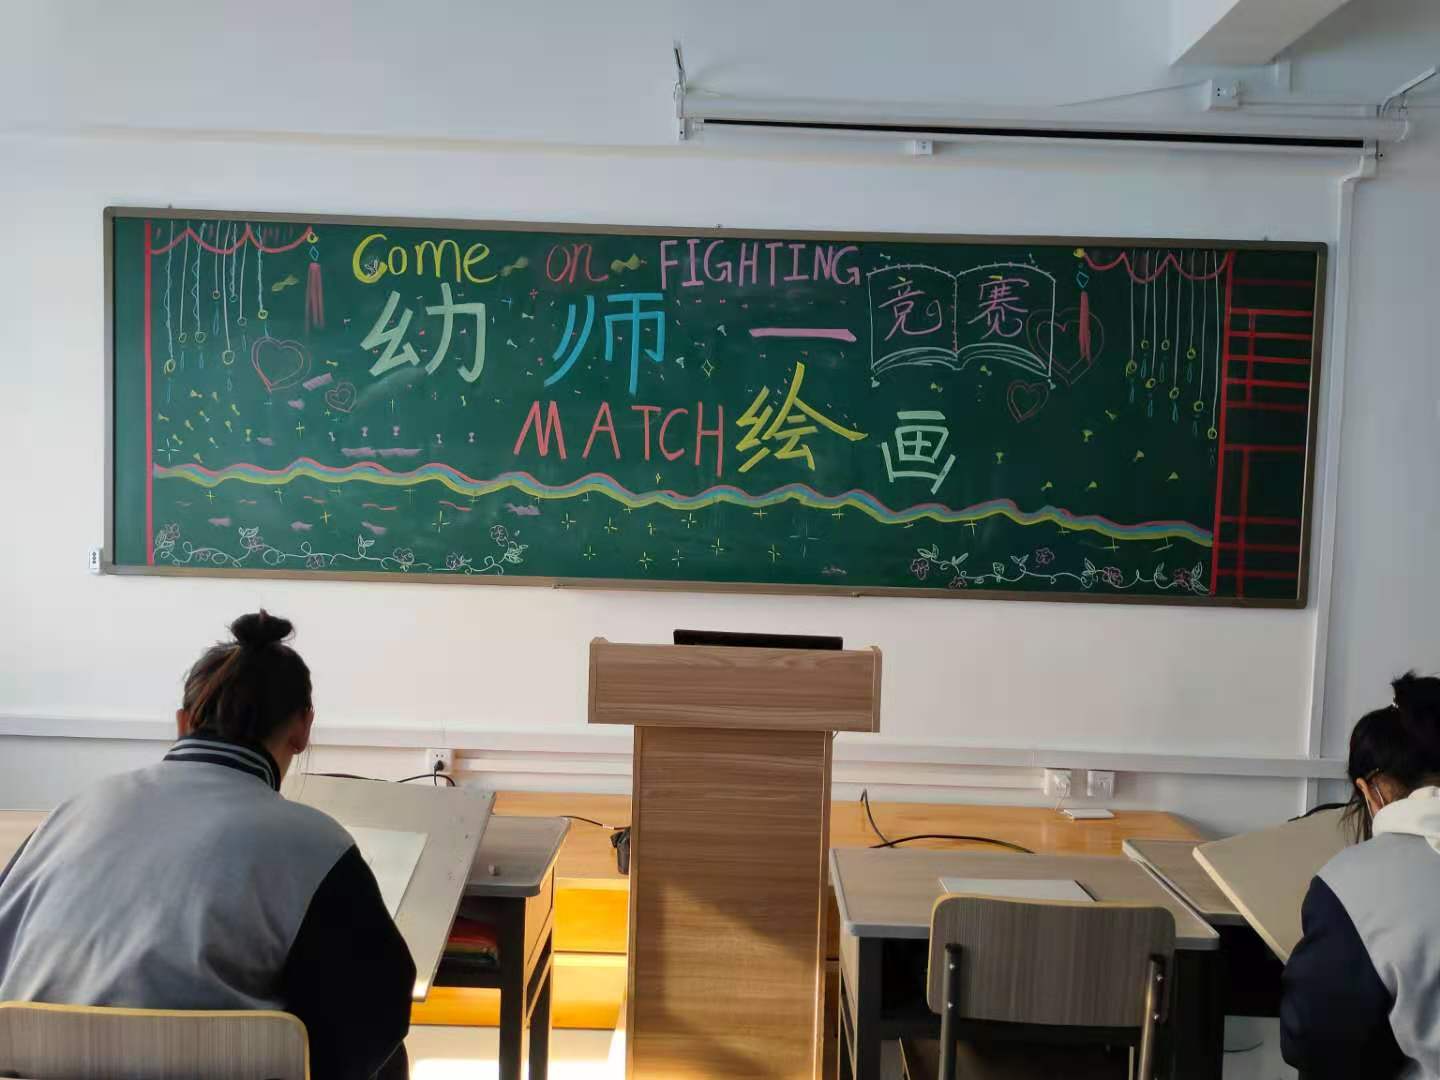 Come on FIGHTING
幼师一 竞赛
MATCH 绘画